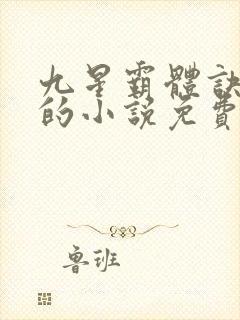 九星霸體訣
的小說免費
鲁班